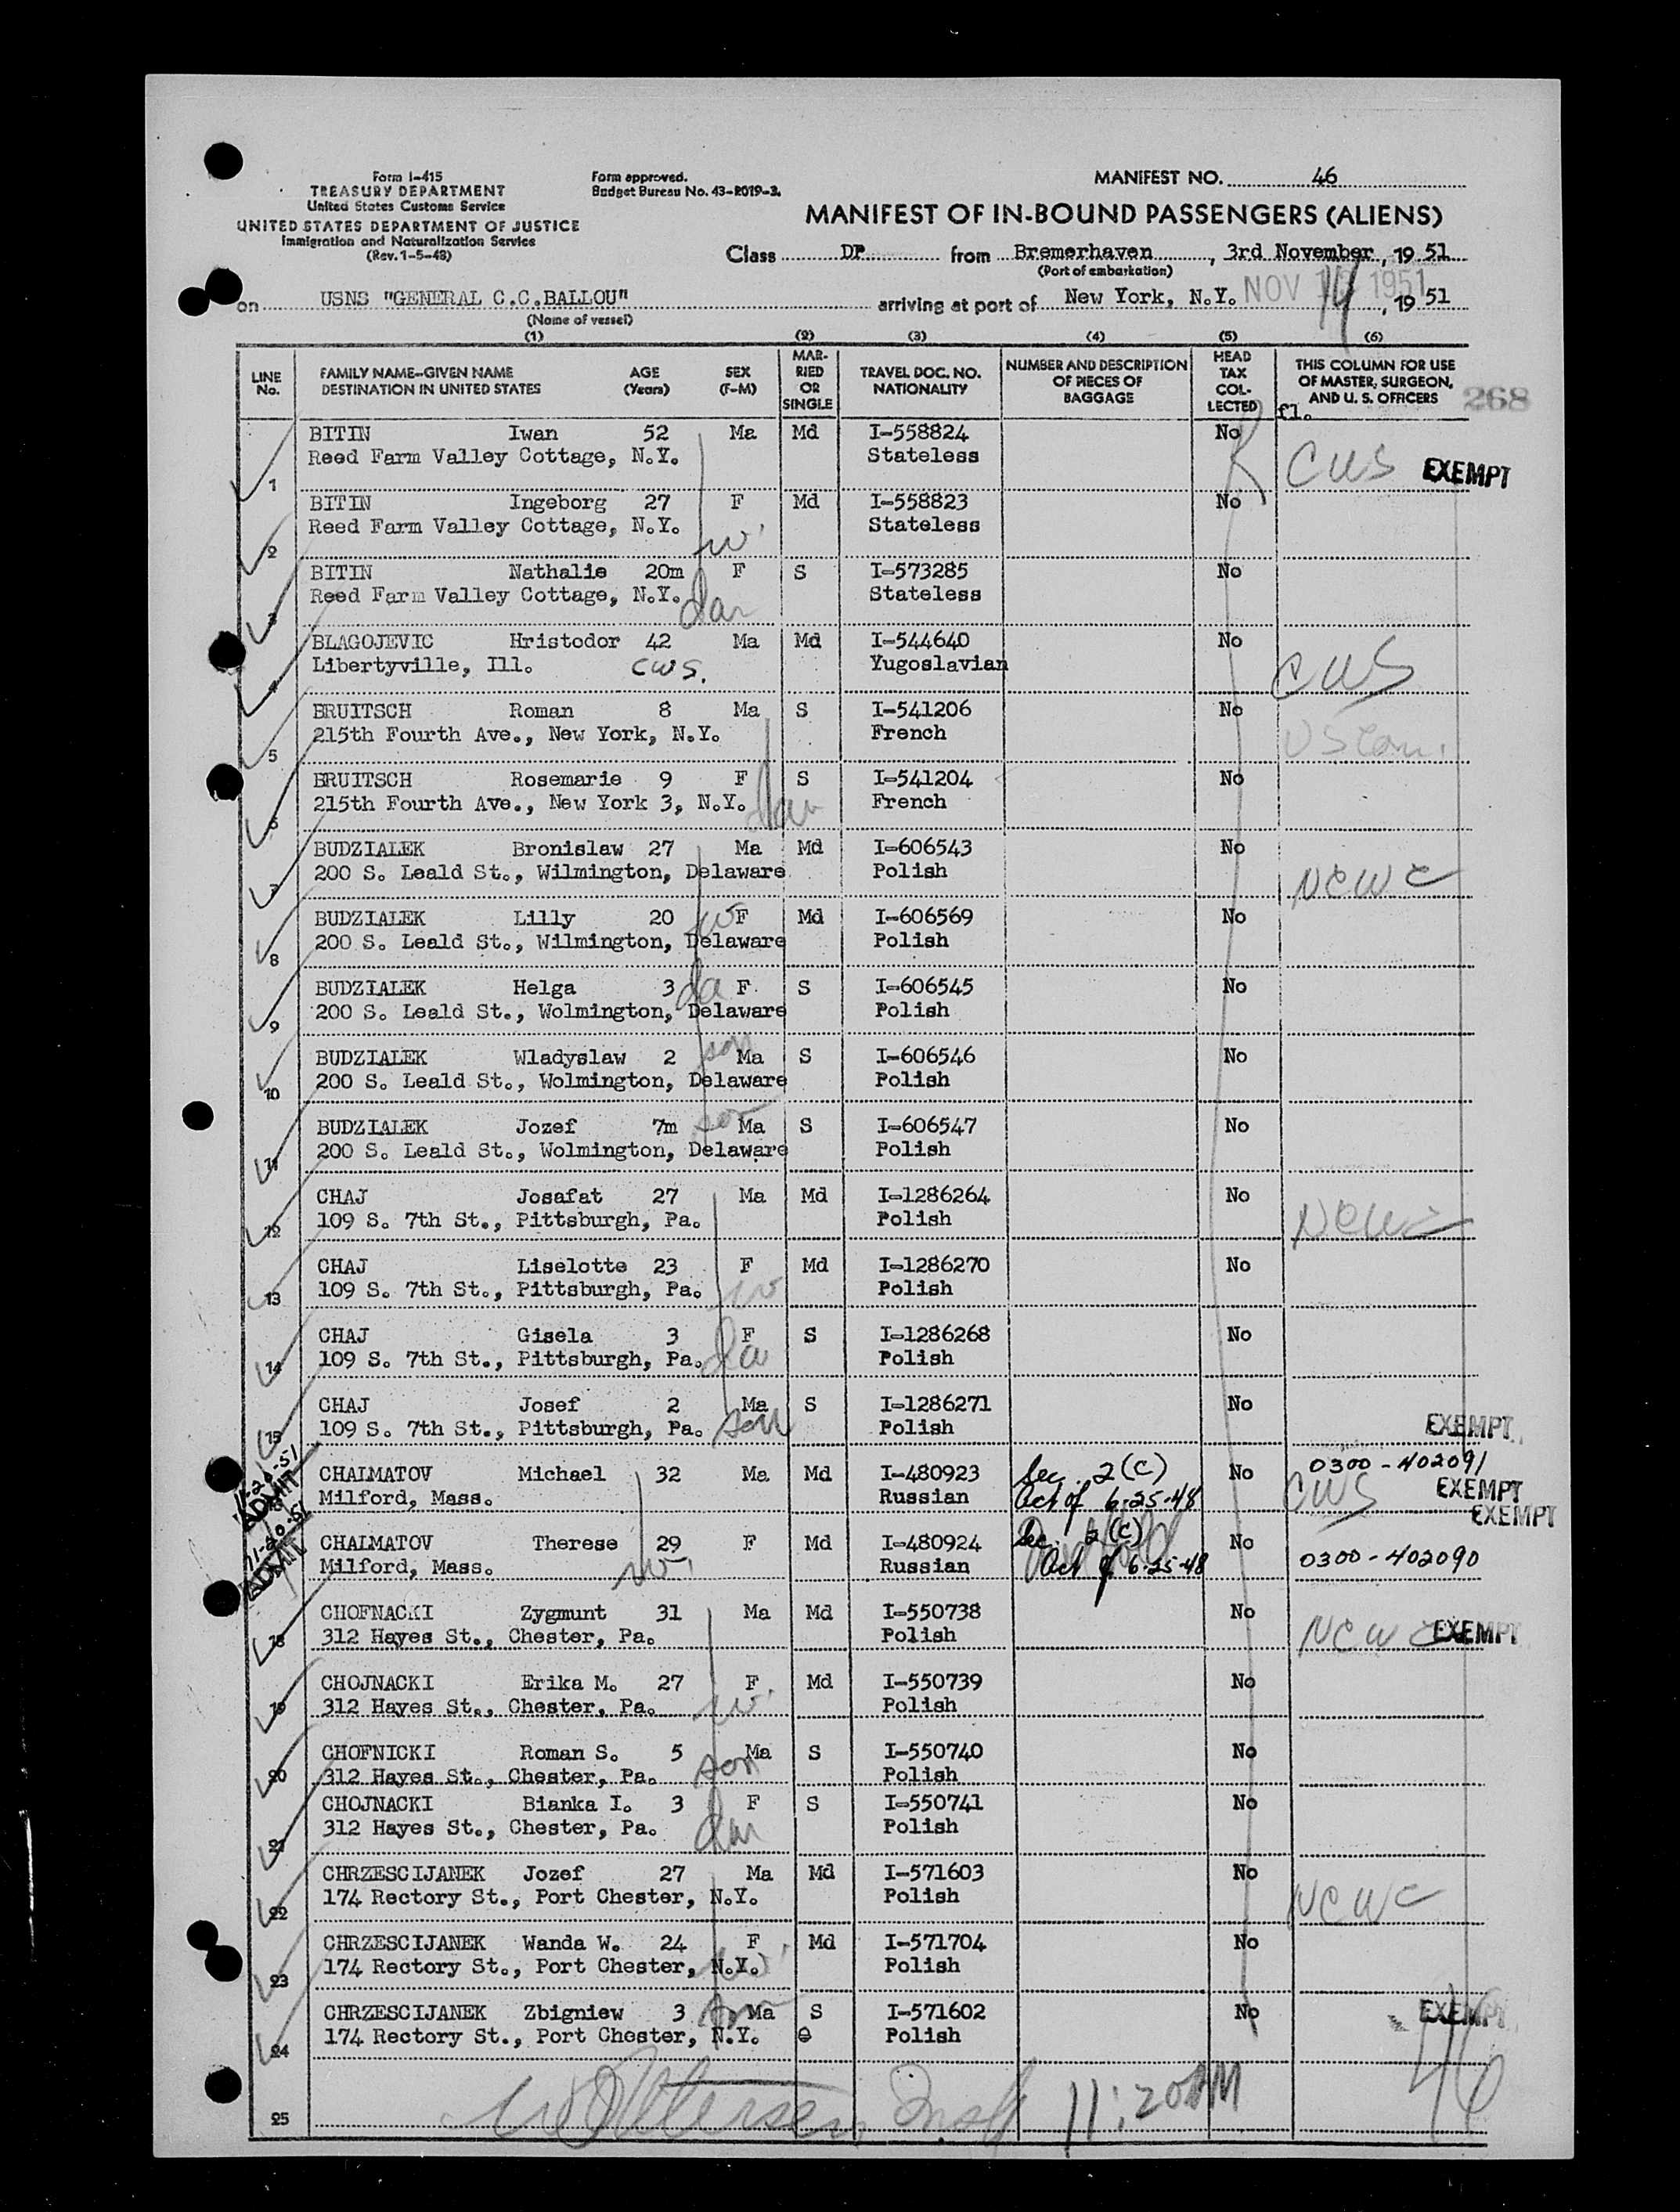 Form I-415
TREASURY DEPARTMENT
United States Customs Service
UNITED STATES DEPARTMENT OF JUSTICE
Immigration and Naturalization Service
(Rev. 1-5-48)
Form approved.
Budget Bureau No. 43-R019-3.
MANIFEST NO. 46
MANIFEST OF IN-BOUND PASSENGERS (ALIENS)
Class DP from Bremerhaven, 3rd November, 19 51
(Port of embarkation)
on USNS "GENERAL C.C.BALLOU" arriving at port of New York, N.Y. NOV 14 1951, 19 51
(Name of vessel)
(1) (2) (3) (4) (5) (6)
LINE No. FAMILY NAME-GIVEN NAME DESTINATION IN UNITED STATES AGE (Years) SEX (F-M) MARRIED OR SINGLE TRAVEL DOC. NO. NATIONALITY NUMBER AND DESCRIPTION OF PIECES OF BAGGAGE HEAD TAX COLLECTED THIS COLUMN FOR USE OF MASTER, SURGEON, AND U. S. OFFICERS 268
fl.
BITIN Iwan 52 Ma Md I-558824 No
Reed Farm Valley Cottage, N.Y. Stateless CWS EXEMPT
1
BITIN Ingeborg 27 F Md I-558823 No
Reed Farm Valley Cottage, N.Y. Stateless
2 w
BITIN Nathalie 20m F S I-573285 No
Reed Farm Valley Cottage, N.Y. dau Stateless
3
BLAGOJEVIC Hristodor 42 Ma Md I-544640 No
Libertyville, Ill. CWS. Yugoslavian CWS
4
BRUITSCH Roman 8 Ma S I-541206 No
215th Fourth Ave., New York, N.Y. French USCom.
5
BRUITSCH Rosemarie 9 F S I-541204 No
215th Fourth Ave., New York 3, N.Y. dau French
6
BUDZIALEK Bronislaw 27 Ma Md I-606543 No
200 S. Leald St., Wilmington, Delaware Polish NCWC
7
BUDZIALEK Lilly 20 w F Md I-606569 No
200 S. Leald St., Wilmington, Delaware Polish
8
BUDZIALEK Helga 3 da F S I-606545 No
200 S. Leald St., Wolmington, Delaware Polish
9
BUDZIALEK Wladyslaw 2 son Ma S I-606546 No
200 S. Leald St., Wolmington, Delaware Polish
10
BUDZIALEK Jozef 7m son Ma S I-606547 No
200 S. Leald St., Wolmington, Delaware Polish
11
CHAJ Josafat 27 Ma Md I-1286264 No
109 S. 7th St., Pittsburgh, Pa. Polish NCWC
12
CHAJ Liselotte 23 F Md I-1286270 No
109 S. 7th St., Pittsburgh, Pa. w Polish
13
CHAJ Gisela 3 F S I-1286268 No
109 S. 7th St., Pittsburgh, Pa. da Polish
14
CHAJ Josef 2 Ma S I-1286271 No
109 S. 7th St., Pittsburgh, Pa. son Polish EXEMPT
15
11-20-51 ADMIT CHALMATOV Michael 32 Ma Md I-480923 Sec. 2(C) No 0300-402091
Milford, Mass. Russian Act of 6-25-48 CWS EXEMPT
EXEMPT
11-20-51 ADMIT CHALMATOV Therese 29 F Md I-480924 Sec. 2(C) No
Milford, Mass. w. Russian Act of 6-25-48 0300-402090
CHOFNACKI Zygmunt 31 Ma Md I-550738 No
312 Hayes St., Chester, Pa. Polish NCWC EXEMPT
18
CHOJNACKI Erika M. 27 F Md I-550739 No
312 Hayes St., Chester, Pa. w. Polish
19
CHOFNICKI Roman S. 5 Ma S I-550740 No
20 312 Hayes St., Chester, Pa. son Polish
CHOJNACKI Bianka I. 3 F S I-550741 No
312 Hayes St., Chester, Pa. dau Polish
21
CHRZESCIJANEK Jozef 27 Ma Md I-571603 No
174 Rectory St., Port Chester, N.Y. Polish NCWC
22
CHRZESCIJANEK Wanda W. 24 F Md I-571704 No
174 Rectory St., Port Chester, N.Y. w Polish
23
CHRZESCIJANEK Zbigniew 3 son Ma S I-571602 No EXEMPT
174 Rectory St., Port Chester, N.Y. Polish
24
11:20AM 46
25